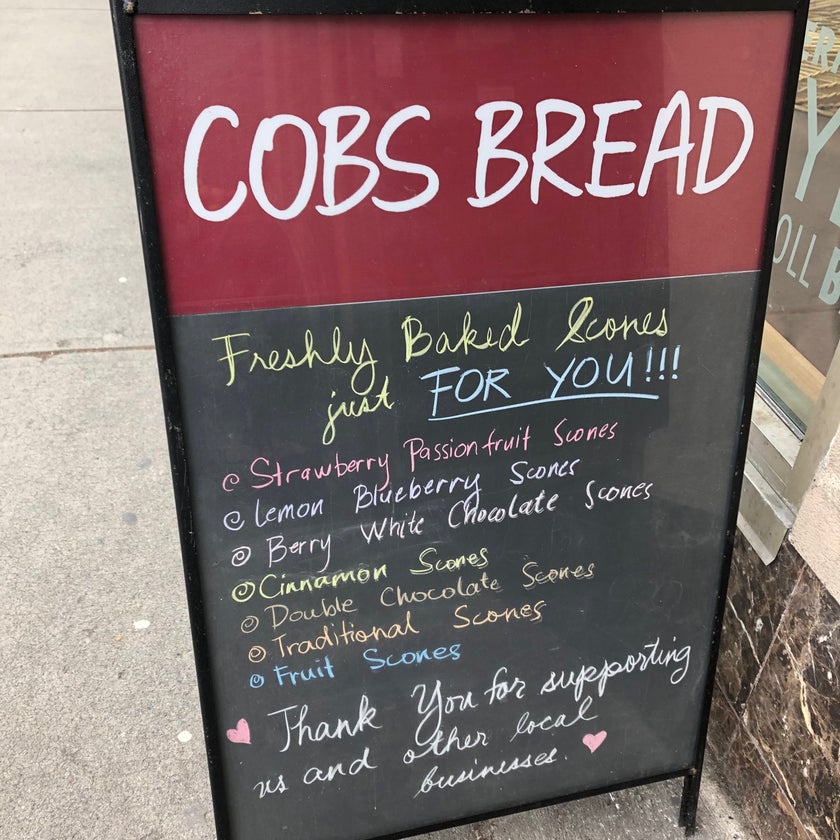 COBS BREAD
Freshly Baked Scones
just FOR YOU!!!
Strawberry Passionfruit Scones
Lemon Blueberry Scones
Berry White Chocolate Scones
Cinnamon Scones
Double Chocolate Scones
Traditional Scones
Fruit Scones
Thank You for supporting
us and other local
businesses.
Y
OLL B